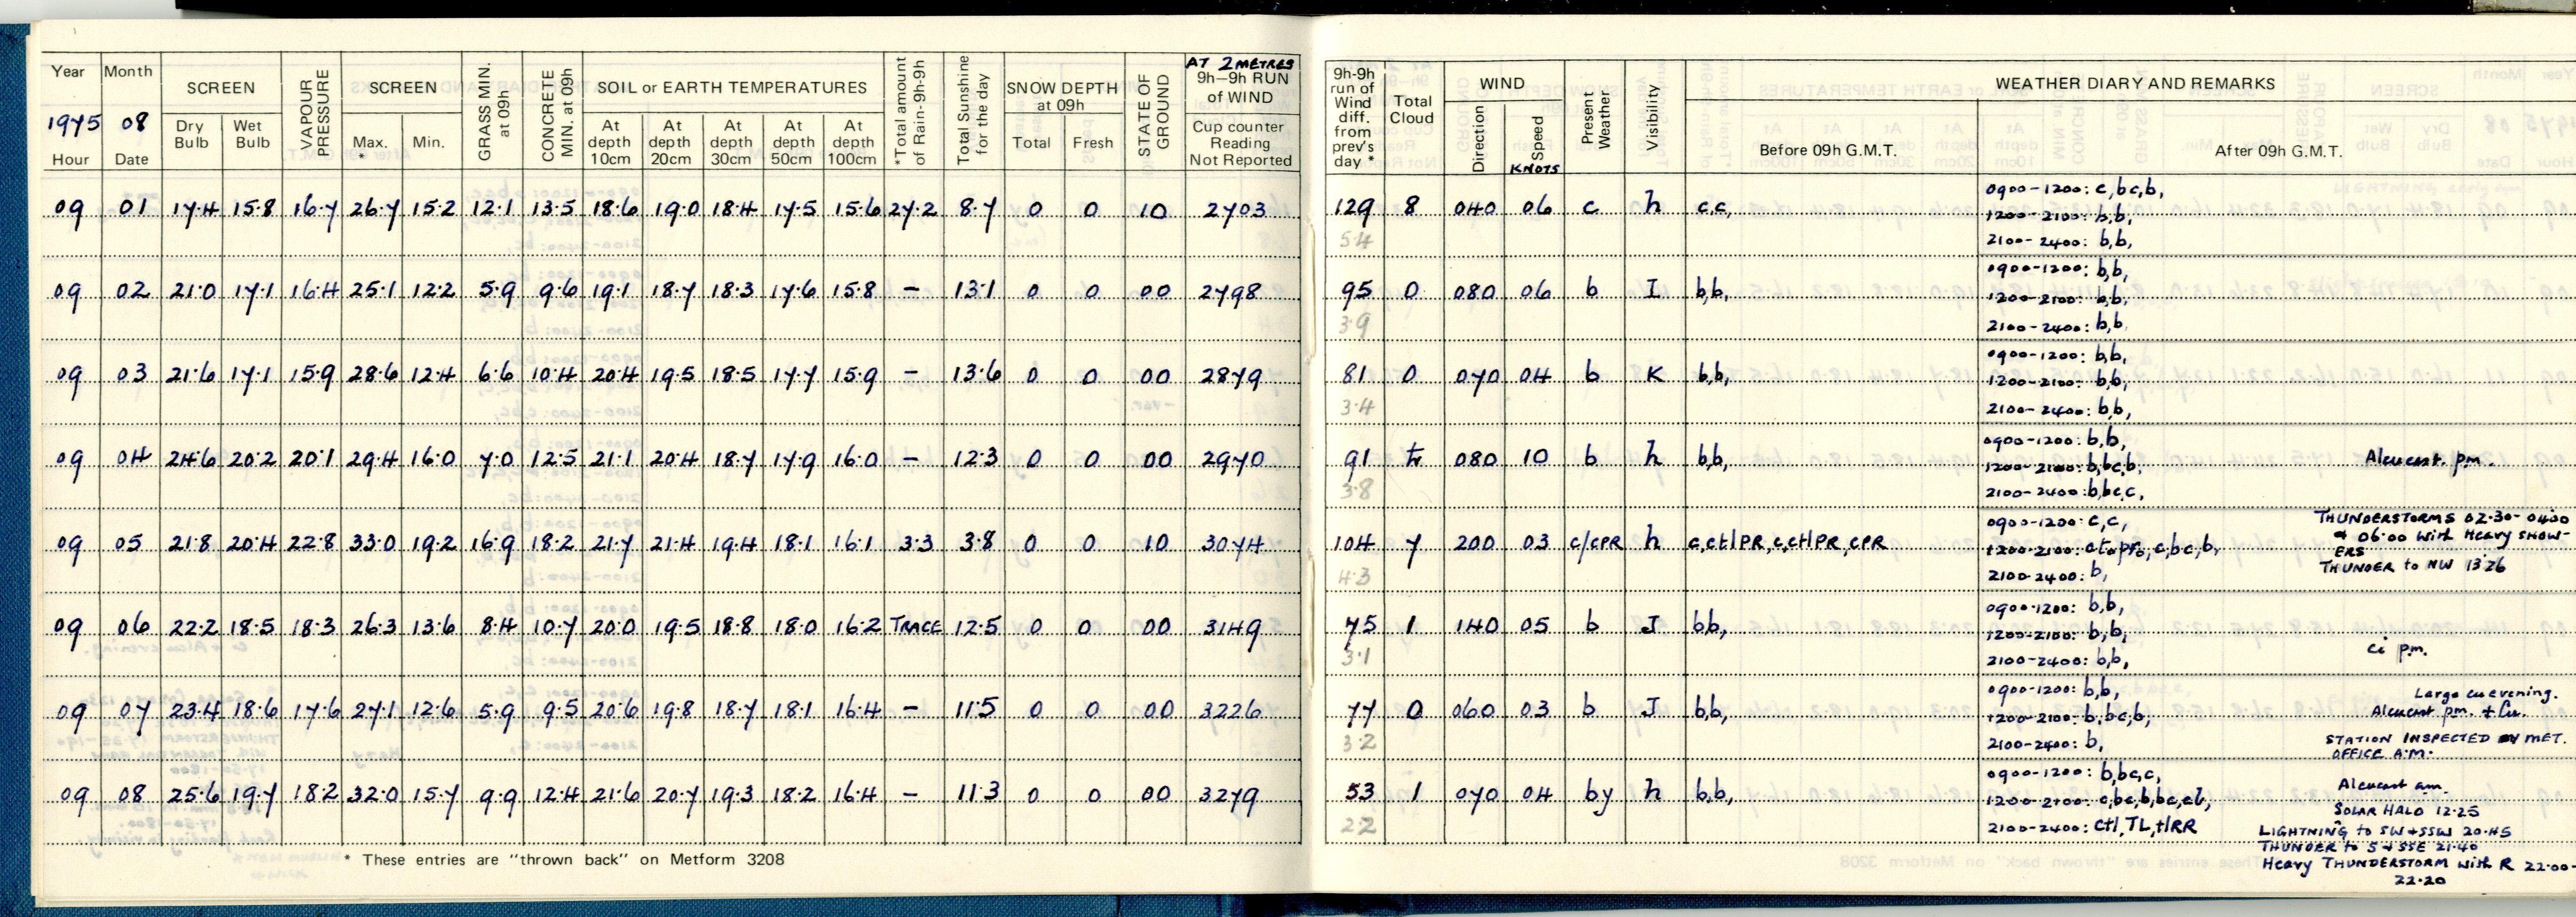 Year Month SCREEN VAPOUR PRESSURE SCREEN GRASS MIN. at 09h CONCRETE MIN. at 09h SOIL or EARTH TEMPERATURES *Total amount of Rain-9h-9h Total Sunshine for the day SNOW DEPTH at 09h STATE OF GROUND AT 2 METRES 9h–9h RUN of WIND
1975 08 Dry Bulb Wet Bulb Max. * Min. At depth 10cm At depth 20cm At depth 30cm At depth 50cm At depth 100cm Total Fresh Cup counter Reading Not Reported
Hour Date
09 01 17.4 15.8 16.7 26.7 15.2 12.1 13.5 18.6 19.0 18.4 17.5 15.6 27.2 8.7 0 0 10 2703
09 02 21.0 17.1 16.4 25.1 12.2 5.9 9.6 19.1 18.7 18.3 17.6 15.8 – 13.1 0 0 00 2798
09 03 21.6 17.1 15.9 28.6 12.4 6.6 10.4 20.4 19.5 18.5 17.7 15.9 – 13.6 0 0 00 2879
09 04 24.6 20.2 20.1 29.4 16.0 7.0 12.5 21.1 20.4 18.7 17.9 16.0 – 12.3 0 0 00 2970
09 05 21.8 20.4 22.8 33.0 19.2 16.9 18.2 21.7 21.4 19.4 18.1 16.1 3.3 3.8 0 0 10 3074
09 06 22.2 18.5 18.3 26.3 13.6 8.4 10.7 20.0 19.5 18.8 18.0 16.2 TRACE 12.5 0 0 00 3149
09 07 23.4 18.6 17.6 27.1 12.6 5.9 9.5 20.6 19.8 18.7 18.1 16.4 – 11.5 0 0 00 3226
09 08 25.6 19.7 18.2 32.0 15.7 9.9 12.4 21.6 20.7 19.3 18.2 16.4 – 11.3 0 0 00 3279
* These entries are "thrown back" on Metform 3208
9h-9h run of Wind diff. from prev's day * Total Cloud WIND Present Weather Visibility WEATHER DIARY AND REMARKS
Direction Speed KNOTS Before 09h G.M.T. After 09h G.M.T.
129 8 040 06 c h c,c, 0900-1200: c,bc,b,
1200-2100: b,b,
5.4 2100-2400: b,b,
95 0 080 06 b I b,b, 0900-1200: b,b,
1200-2100: b,b,
3.9 2100-2400: b,b,
81 0 070 04 b K b,b, 0900-1200: b,b,
1200-2100: b,b,
3.4 2100-2400: b,b,
91 tr 080 10 b h b,b, 0900-1200: b,b,
1200-2100: b,bc,b, Alcucast. pm.
3.8 2100-2400: b,bc,c,
104 7 200 03 c/cPR h c,ctlPR,c,ctlPR,cPR 0900-1200: c,c, THUNDERSTORMS 02.30-0400
& 06.00 with Heavy SHOW-
1200-2100: ERS
4.3 2100-2400: b, THUNDER to NW 13.26
75 1 140 05 b J b,b, 0900-1200: b,b,
1200-2100: b,b, ci pm.
3.1 2100-2400: b,b,
77 0 060 03 b J b,b, 0900-1200: b,b, Large cu evening.
1200-2100: b,bc,b, Alcucast pm. + Cu.
3.2 2100-2400: b, STATION INSPECTED BY MET.
OFFICE A.M.
53 1 070 04 by h b,b, 0900-1200: b,bc,c, Alcucast am.
1200-2100: SOLAR HALO 12.25
2.2 2100-2400: ctl,TL,tlRR LIGHTNING to SW+SSW 20.45
THUNDER to S+SSE 21.40
Heavy THUNDERSTORM with R 22.00-
22.20